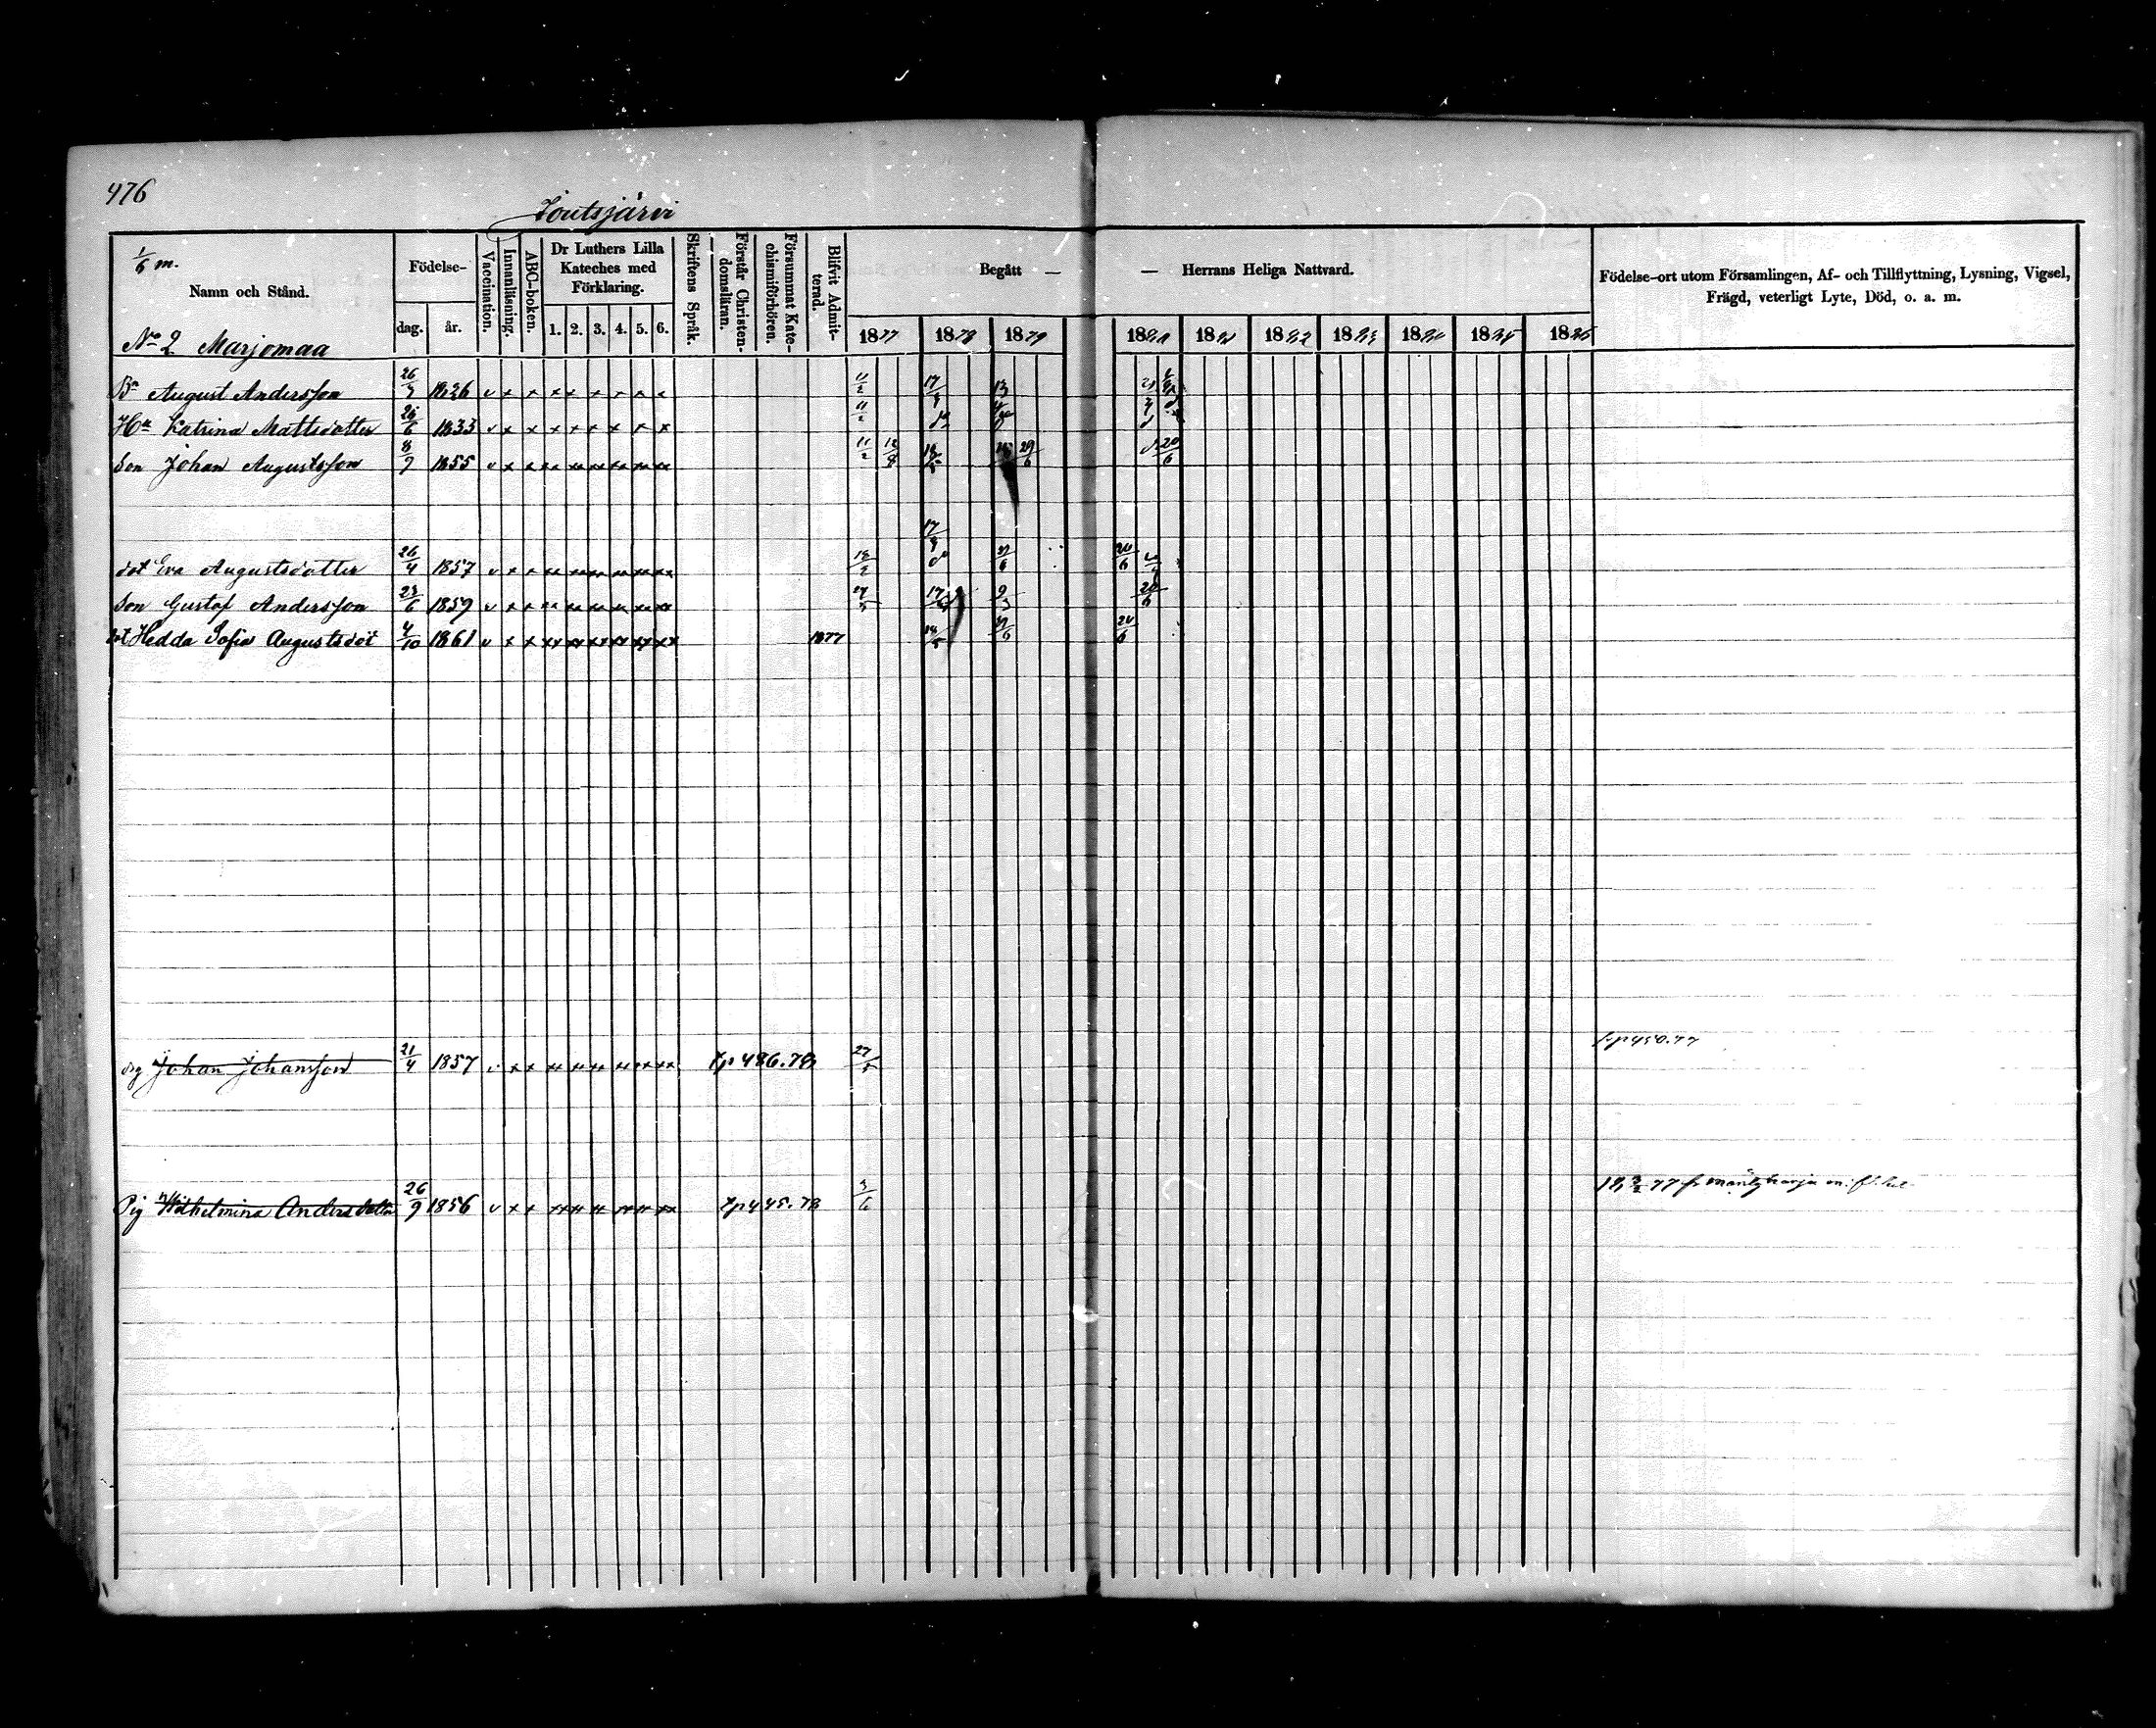 476
Joutsjärvi
1/6 m.
Namn och Stånd.
No 2 Marjomaa
Födelse-
dag. år.
Vaccination.
Innanläsning.
ABC-boken.
Dr Luthers Lilla
Kateches med
Förklaring.
1. 2. 3. 4. 5. 6.
Skriftens Språk.
Förstår Christen-
domsläran.
Försummat Kate-
chismiförhören.
Blifvit Admit-
terad.
Begått —
— Herrans Heliga Nattvard.
1877 1878 1879 1880 1881 1882 1883 1884 1885 1886
Födelse-ort utom Församlingen, Af- och Tillflyttning, Lysning, Vigsel,
Frägd, veterligt Lyte, Död, o. a. m.
Bn August Andersson 1836 v x x
Hu Katrina Mattsdotter 26/6 1833 v x x 11/2
Son Johan Augustsson 8/9 1855 v x x 11/2 12/8 18/5 29/6 20/6
dot Eva Augustsdotter 26/4 1857 v x x 20/6
Son Gustaf Andersson 23/6 1859 v x x 20/6
dot Hedda Sofia Augustsdot 4/10 1861 v x x 1877 20/6
drg Johan Johansson 21/4 1857 v x x tp 486.78 27/5
Pig Wilhelmina Andersdotter 26/9 1856 v x x tp 445.78 3/6